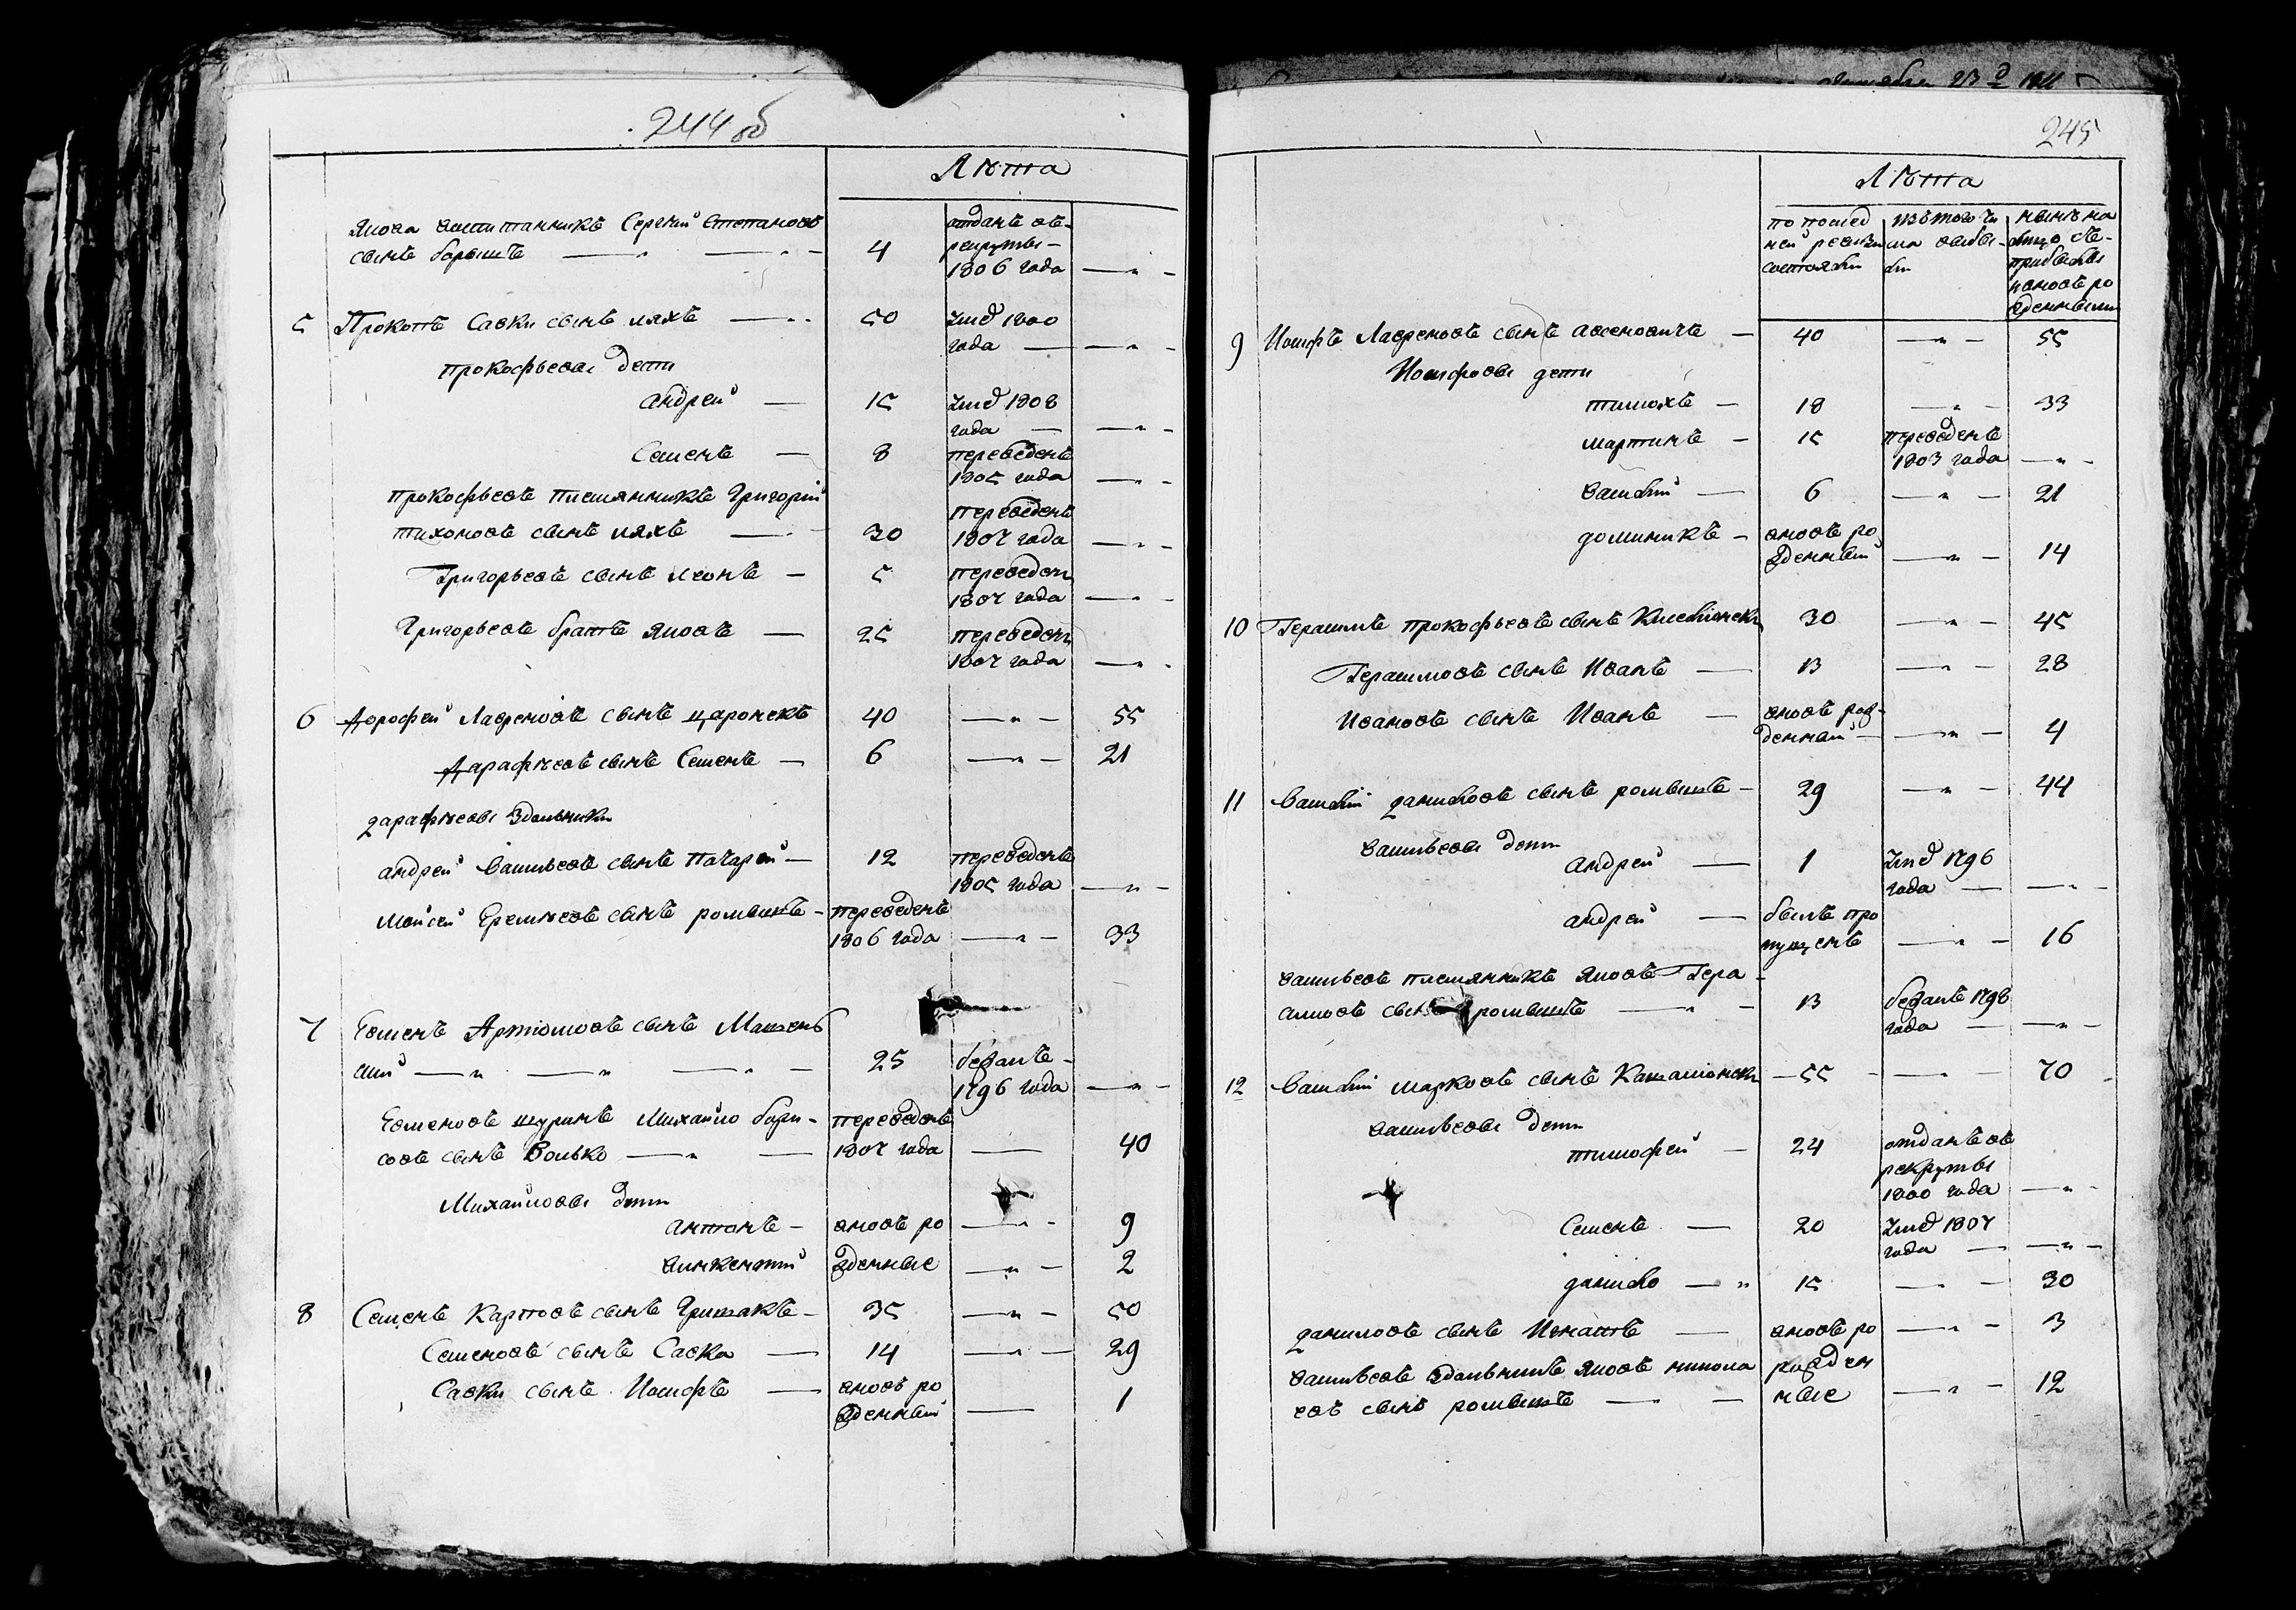 244 об
Лѣта
Якова воспитанникъ Сергѣй Степановъ
сынъ барышъ — 4 отданъ въ
рекруты
1806 года —
5 Прокопъ Савки сынъ ляхъ — 50 умѣ 1800
года —
прокофьевы дети
андрей — 15 умѣ 1808
года —
Семенъ — 8 переведенъ
1805 года —
прокофьевъ племянникъ Григорій
тихоновъ сынъ ляхъ — 30 переведенъ
1807 года —
Григорьевъ сынъ леонъ — 5 переведенъ
1807 года —
Григорьевъ братъ Яковъ — 25 переведенъ
1807 года —
6 Дорофей Лавреновъ сынъ царонекъ 40 — 55
Дарафѣевъ сынъ Семенъ — 6 — 21
дарафѣевы здольники
андрей Васильевъ сынъ — 12 переведенъ
1805 года —
Мойсей Еремѣевъ сынъ ромышъ — переведенъ
1806 года — 33
7 Есменъ Артіомовъ сынъ
— 25 бежалъ
1796 года —
Есменовъ шуринъ Михайло бори-
совъ сынъ Волько — переведенъ
1807 года — 40
Михайловы дети
антонъ — вновь ро — 9
викентій жденные — 2
8 Семенъ Карповъ сынъ Гришакъ — 35 — 50
Семеновъ сынъ Савка — 14 — 29
Савки сынъ Иосифъ — вновь ро
жденный — 1
октября 23 д 1811
245
Лѣта
по послед
ней ревизіи
состояли
изъ того чи
сла выбы-
ли
нынѣ на
лицо съ
прибылы
и вновь ро
жденными
9 Иосифъ Лавреновъ сынъ авсеновичъ — 40 — 55
Иосифовы дети
тимохъ — 18 — 33
мартинъ — 15 переведенъ
1803 года —
василій — 6 — 21
доминикъ — вновь ро
жденный — 14
10 Герасимъ прокофьевъ сынъ 30 — 45
Герасимовъ сынъ Иванъ — 13 — 28
Ивановъ сынъ Иванъ — вновь рож-
денный — 4
11 Василій даниловъ сынъ ромышъ — 29 — 44
васильевы дети
андрей — 1 умѣ 1796
года —
андрей — былъ про
пущенъ — 16
васильевъ племянникъ Яковъ Гера
симовъ сынъ ромышъ — 13 бежалъ 1798
года —
12 Василій марковъ сынъ — 55 — 70
васильевы дети
тимофей — 24 отданъ въ
рекруты
1800 года —
Семенъ — 20 умѣ 1807
года —
данило — 15 — 30
даниловъ сынъ Игнатъ — вновь ро — 3
васильевъ здольникъ Яковъ никола
евъ сынъ ромышъ — рожден
ные — 12